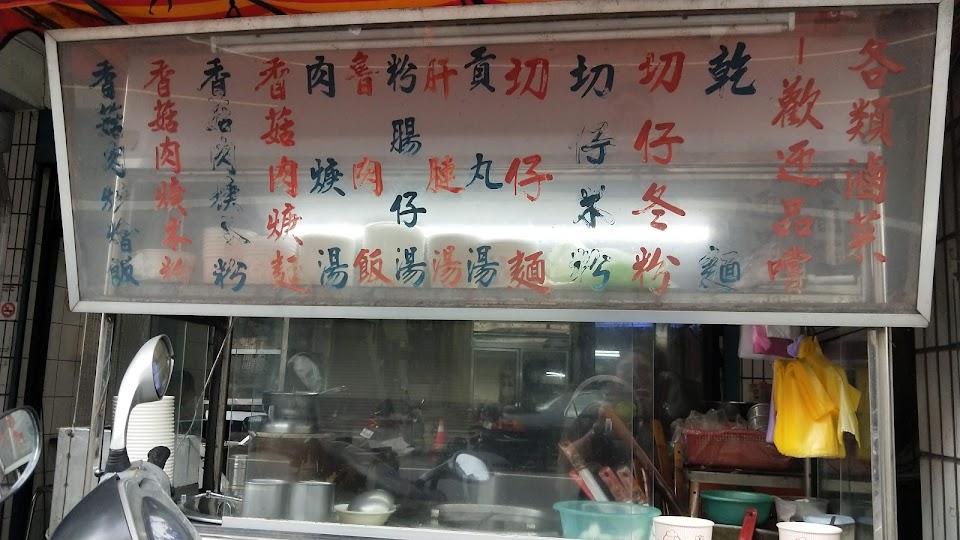 各類滷菜
—歡迎品嚐
乾麵
切仔冬粉
切仔米粉
切仔麵
貢丸湯
肝腱湯
粉腸仔湯
魯肉飯
肉焿湯
香菇肉焿麵
香菇肉焿冬粉
香菇肉焿米粉
香菇肉焿燴飯